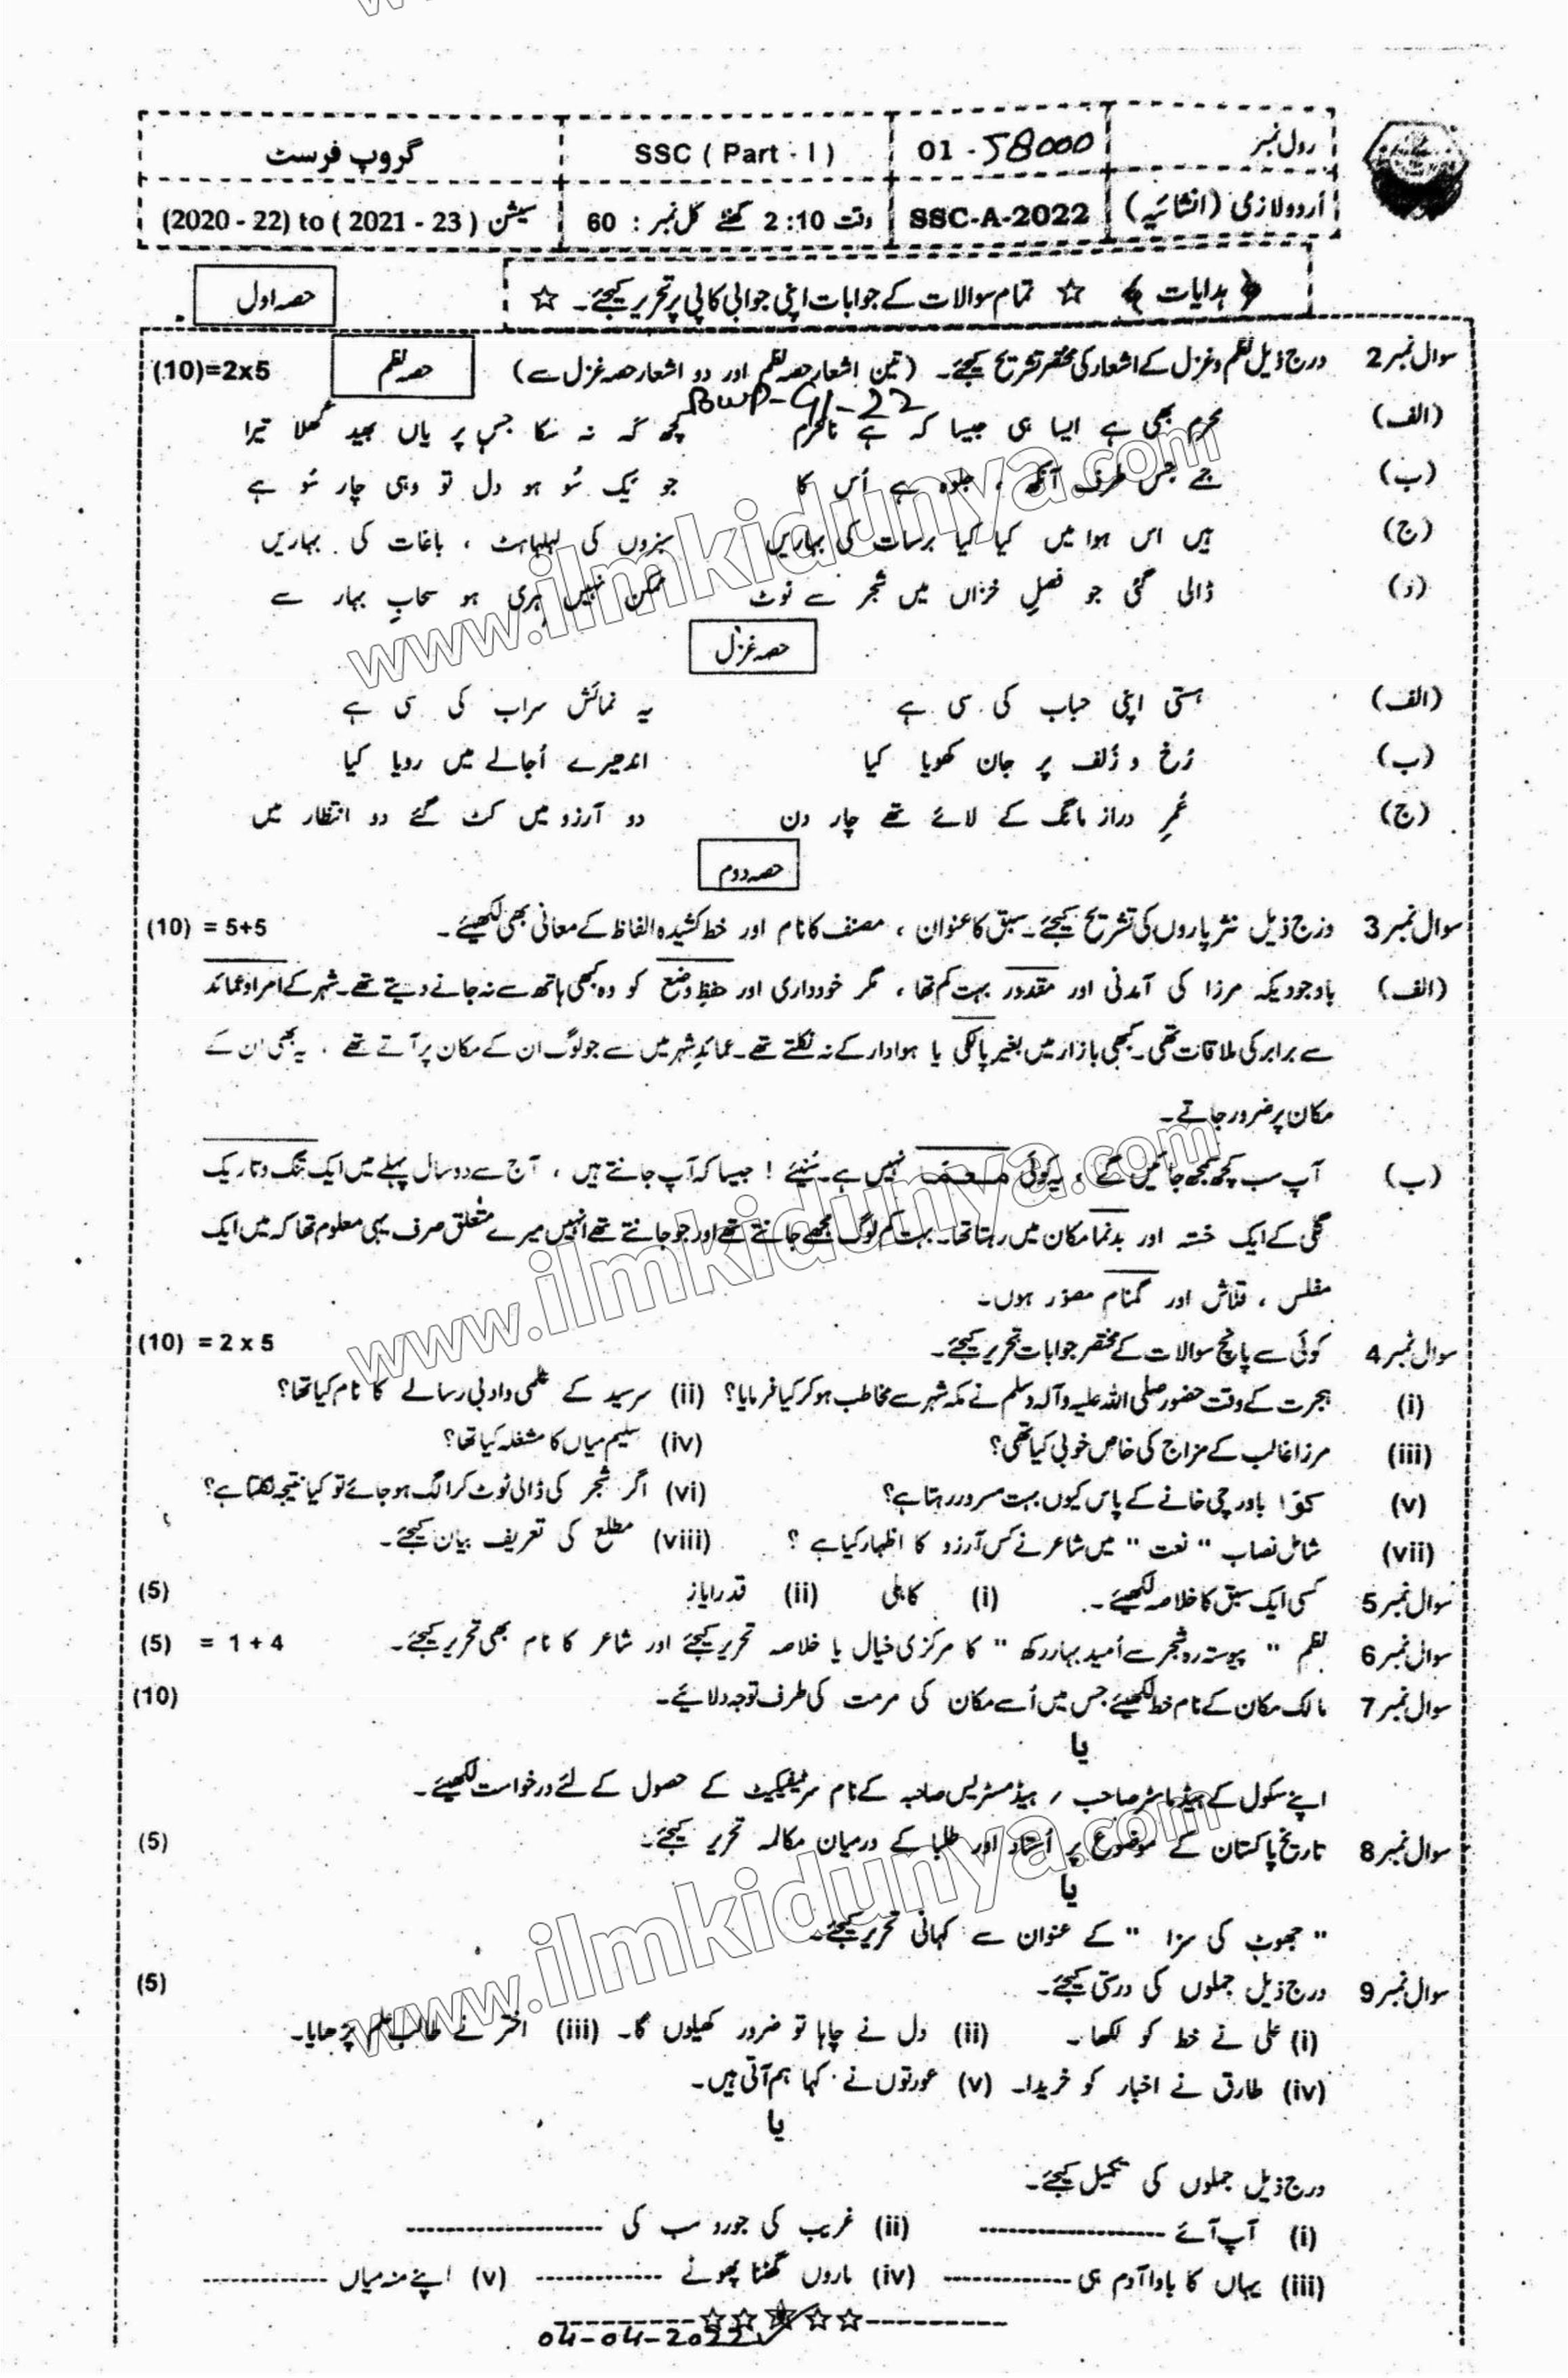 رول نمبر 01 - 58000 SSC ( Part - I ) گروپ فرسٹ
اُردو لازمی (انشائیہ) SSC-A-2022 وقت 2:10 گھنٹے کل نمبر : 60 سیشن (2020 - 22) to ( 2021 - 23 )
﴿ ہدایات ﴾ ☆ تمام سوالات کے جوابات اپنی جوابی کاپی پر تحریر کیجئے۔ ☆ حصہ اول
سوال نمبر 2 درج ذیل نظم و غزل کے اشعار کی مختصر تشریح کیجئے۔ (تین اشعار حصہ نظم اور دو اشعار حصہ غزل سے) حصہ نظم (10)=2x5
BWP-G1-22
(الف) محرم بھی ہے ایسا ہی جیسا کہ ہے نامحرم کچھ کہہ نہ سکا جس پر یاں بھید کھلا تیرا
(ب) جمے جس طرف آنکھ ، جلوہ ہے اُس کا جو یک سُو ہو دل تو وہی چار سُو ہے
(ج) ہیں اس ہوا میں کیا کیا برسات کی بہاریں سبزوں کی لہلہاہٹ ، باغات کی بہاریں
(د) ڈالی گئی جو فصلِ خزاں میں شجر سے ٹوٹ ممکن نہیں ہری ہو سحابِ بہار سے
حصہ غزل
(الف) ہستی اپنی حباب کی سی ہے یہ نمائش سراب کی سی ہے
(ب) رُخ و زُلف پر جان کھویا کیا اندھیرے اُجالے میں رویا کیا
(ج) عُمرِ دراز مانگ کے لائے تھے چار دن دو آرزو میں کٹ گئے دو انتظار میں
حصہ دوم
سوال نمبر 3 درج ذیل نثر پاروں کی تشریح کیجئے۔ سبق کا عنوان ، مصنف کا نام اور خط کشیدہ الفاظ کے معانی بھی لکھیئے۔ (10) = 5+5
(الف) باوجودیکہ مرزا کی آمدنی اور مقدور بہت کم تھا ، مگر خودداری اور حفظِ وضع کو وہ کبھی ہاتھ سے نہ جانے دیتے تھے۔ شہر کے امرا و عمائد
سے برابر کی ملاقات تھی۔ کبھی بازار میں بغیر پالکی یا ہوادار کے نہ نکلتے تھے۔ عمائدِ شہر میں سے جو لوگ ان کے مکان پر آتے تھے ، یہ بھی ان کے
مکان پر ضرور جاتے۔
(ب) آپ سب کچھ سمجھ جائیں گے ، یہ کوئی معمہ نہیں ہے۔ سُنیئے ! جیسا کہ آپ جانتے ہیں ، آج سے دو سال پہلے میں ایک تنگ و تاریک
گلی کے ایک خستہ اور بدنما مکان میں رہتا تھا۔ بہت کم لوگ مجھے جانتے تھے اور جو جانتے تھے انہیں میرے متعلق صرف یہی معلوم تھا کہ میں ایک
مفلس ، قلاش اور گمنام مصور ہوں۔
سوال نمبر 4 کوئی سے پانچ سوالات کے مختصر جوابات تحریر کیجئے۔ (10) = 2 x 5
(i) ہجرت کے وقت حضور صلی اللہ علیہ وآلہ وسلم نے مکہ شہر سے مخاطب ہو کر کیا فرمایا؟ (ii) سرسید کے علمی و ادبی رسالے کا نام کیا تھا؟
(iii) مرزا غالب کے مزاج کی خاص خوبی کیا تھی؟ (iv) سلیم میاں کا مشغلہ کیا تھا؟
(v) کوّا باورچی خانے کے پاس کیوں بہت مسرور رہتا ہے؟ (vi) اگر شجر کی ڈالی ٹوٹ کر الگ ہو جائے تو کیا نتیجہ نکلتا ہے؟
(vii) شامل نصاب " نعت " میں شاعر نے کس آرزو کا اظہار کیا ہے ؟ (viii) مطلع کی تعریف بیان کیجئے۔
سوال نمبر 5 کسی ایک سبق کا خلاصہ لکھیئے۔ (i) کاہلی (ii) قدر ایاز (5)
سوال نمبر 6 نظم " پیوستہ رہ شجر سے اُمید بہار رکھ " کا مرکزی خیال یا خلاصہ تحریر کیجئے اور شاعر کا نام بھی تحریر کیجئے۔ (5) = 1 + 4
سوال نمبر 7 مالک مکان کے نام خط لکھیئے جس میں اُسے مکان کی مرمت کی طرف توجہ دلائیے۔ (10)
یا
اپنے سکول کے ہیڈ ماسٹر صاحب / ہیڈ مسٹریس صاحبہ کے نام سرٹیفکیٹ کے حصول کے لئے درخواست لکھیئے۔
سوال نمبر 8 تاریخ پاکستان کے موضوع پر اُستاد اور طلبا کے درمیان مکالمہ تحریر کیجئے۔ (5)
یا
" جھوٹ کی سزا " کے عنوان سے کہانی تحریر کیجئے۔
سوال نمبر 9 درج ذیل جملوں کی درستی کیجئے۔ (5)
(i) علی نے خط کو لکھا۔ (ii) دل نے چاہا تو ضرور کھیلوں گا۔ (iii) اختر نے طالب علم پڑھایا۔
(iv) طارق نے اخبار کو خریدا۔ (v) عورتوں نے کہا ہم آتی ہیں۔
یا
درج ذیل جملوں کی تکمیل کیجئے۔
(i) آپ آئے ---------- (ii) غریب کی جورو سب کی ----------
(iii) یہاں کا باوا آدم ہی ---------- (iv) ماروں گھٹنا پھوٹے ---------- (v) اپنے منہ میاں ----------
----------☆☆★☆☆----------
04-04-2022
www.ilmkidunya.com
www.ilmkidunya.com
www.ilmkidunya.com